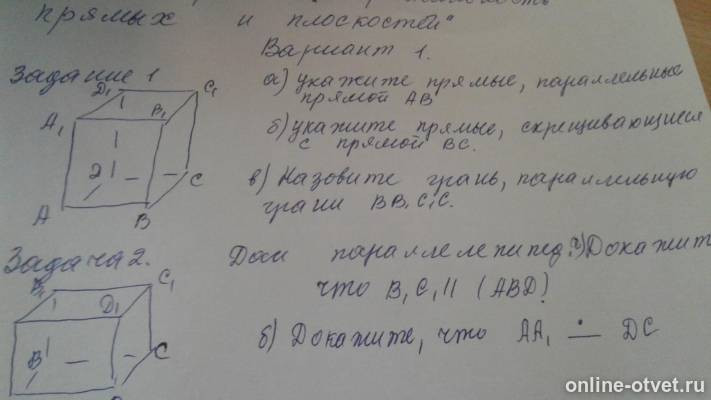 прямых и плоскостей"
Вариант 1.
Задание 1
а) укажите прямые, параллельные
прямой АВ
б) укажите прямые, скрещивающиеся
с прямой ВС.
в) Назовите грань, параллельную
грани BB1C1C.
D1 C1
A1 B1
C
A B
Задача 2.
Дан параллелепипед. Докажит
что B1C1 || (ABD)
б) Докажите, что AA1 ∸ DC
C1
D1
B C
online-otvet.ru